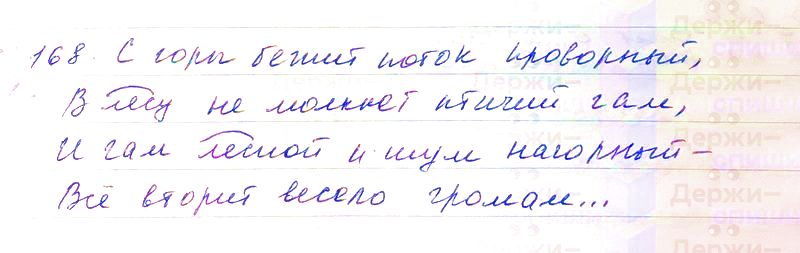 168. С горы бежит поток проворный,
В лесу не молкнет птичий гам,
И гам лесной и шум нагорный –
Всё вторит весело громам...
Держи–
спиши
Держи–
спиши
Держи–
спиши
Держи–